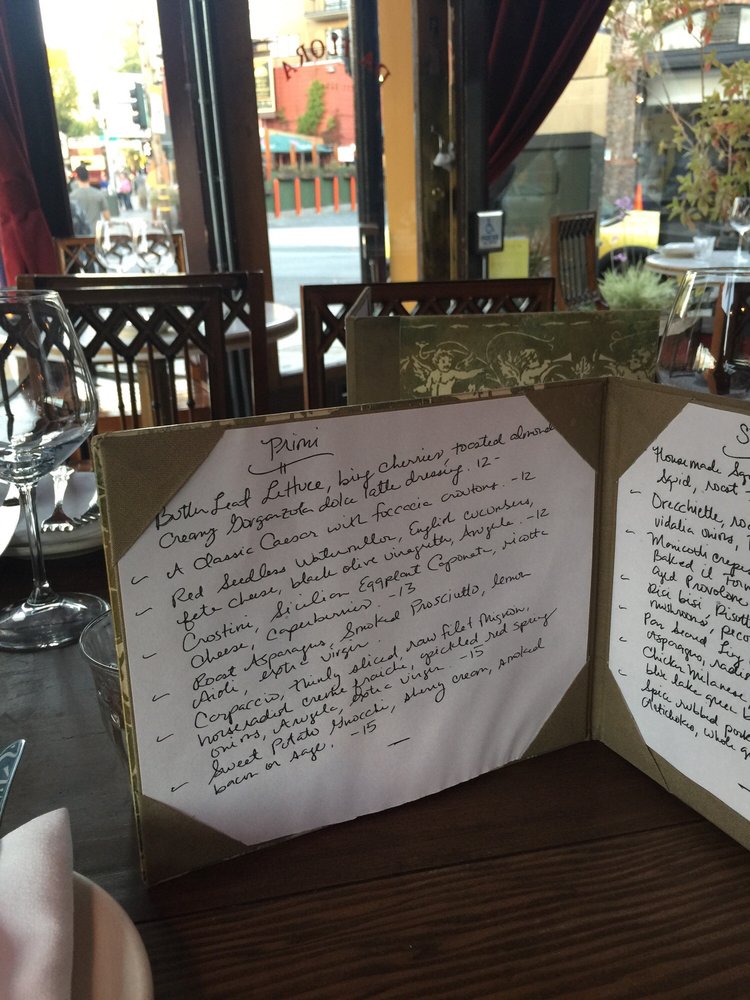 FLORA
Primi
Butter Leaf Lettuce, bing cherries, toasted almond
Creamy Gorganzola dolce latte dressing. 12-
A Classic Caesar with foccacia croutons. -12
Red Seedless Watermellon, English cucumbers,
feta cheese, black olive vinagrette, Arugula. -12
Crostini, Sicilian Eggplant Caponata, ricotta
cheese, caperberries. -13
Roast Asparagus, Smoked Prosciutto, lemon
Aioli, extra virgin.
Carpaccio, thinly sliced, raw filet mignon,
horseradish creme fraiche, pickled red spring
onions, Arugula, extra virgin. -15
Sweet Potato Gnocchi, sherry cream, smoked
bacon or sage. -15
S
Homemade
Squid, roast
Orecchiette,
vidalia onions,
Manicotti crepes
Baked
aged Provolone
Risi bisi Risotto
mushrooms,
Pan seared
Asparagus,
Chicken Milanese
blue lake green
Spice rubbed pork
Artichokes, whole